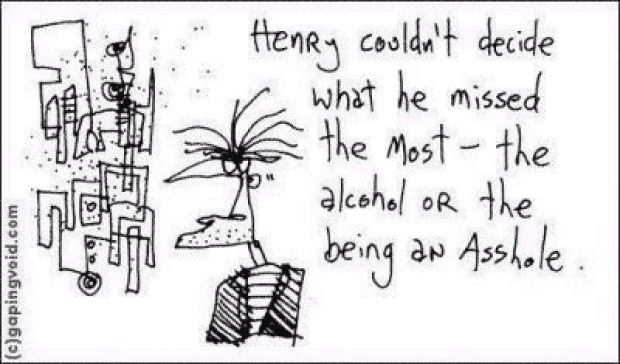 Henry couldn't decide
what he missed
the Most – the
alcohol OR the
being an Asshole.
(c)gapingvoid.com